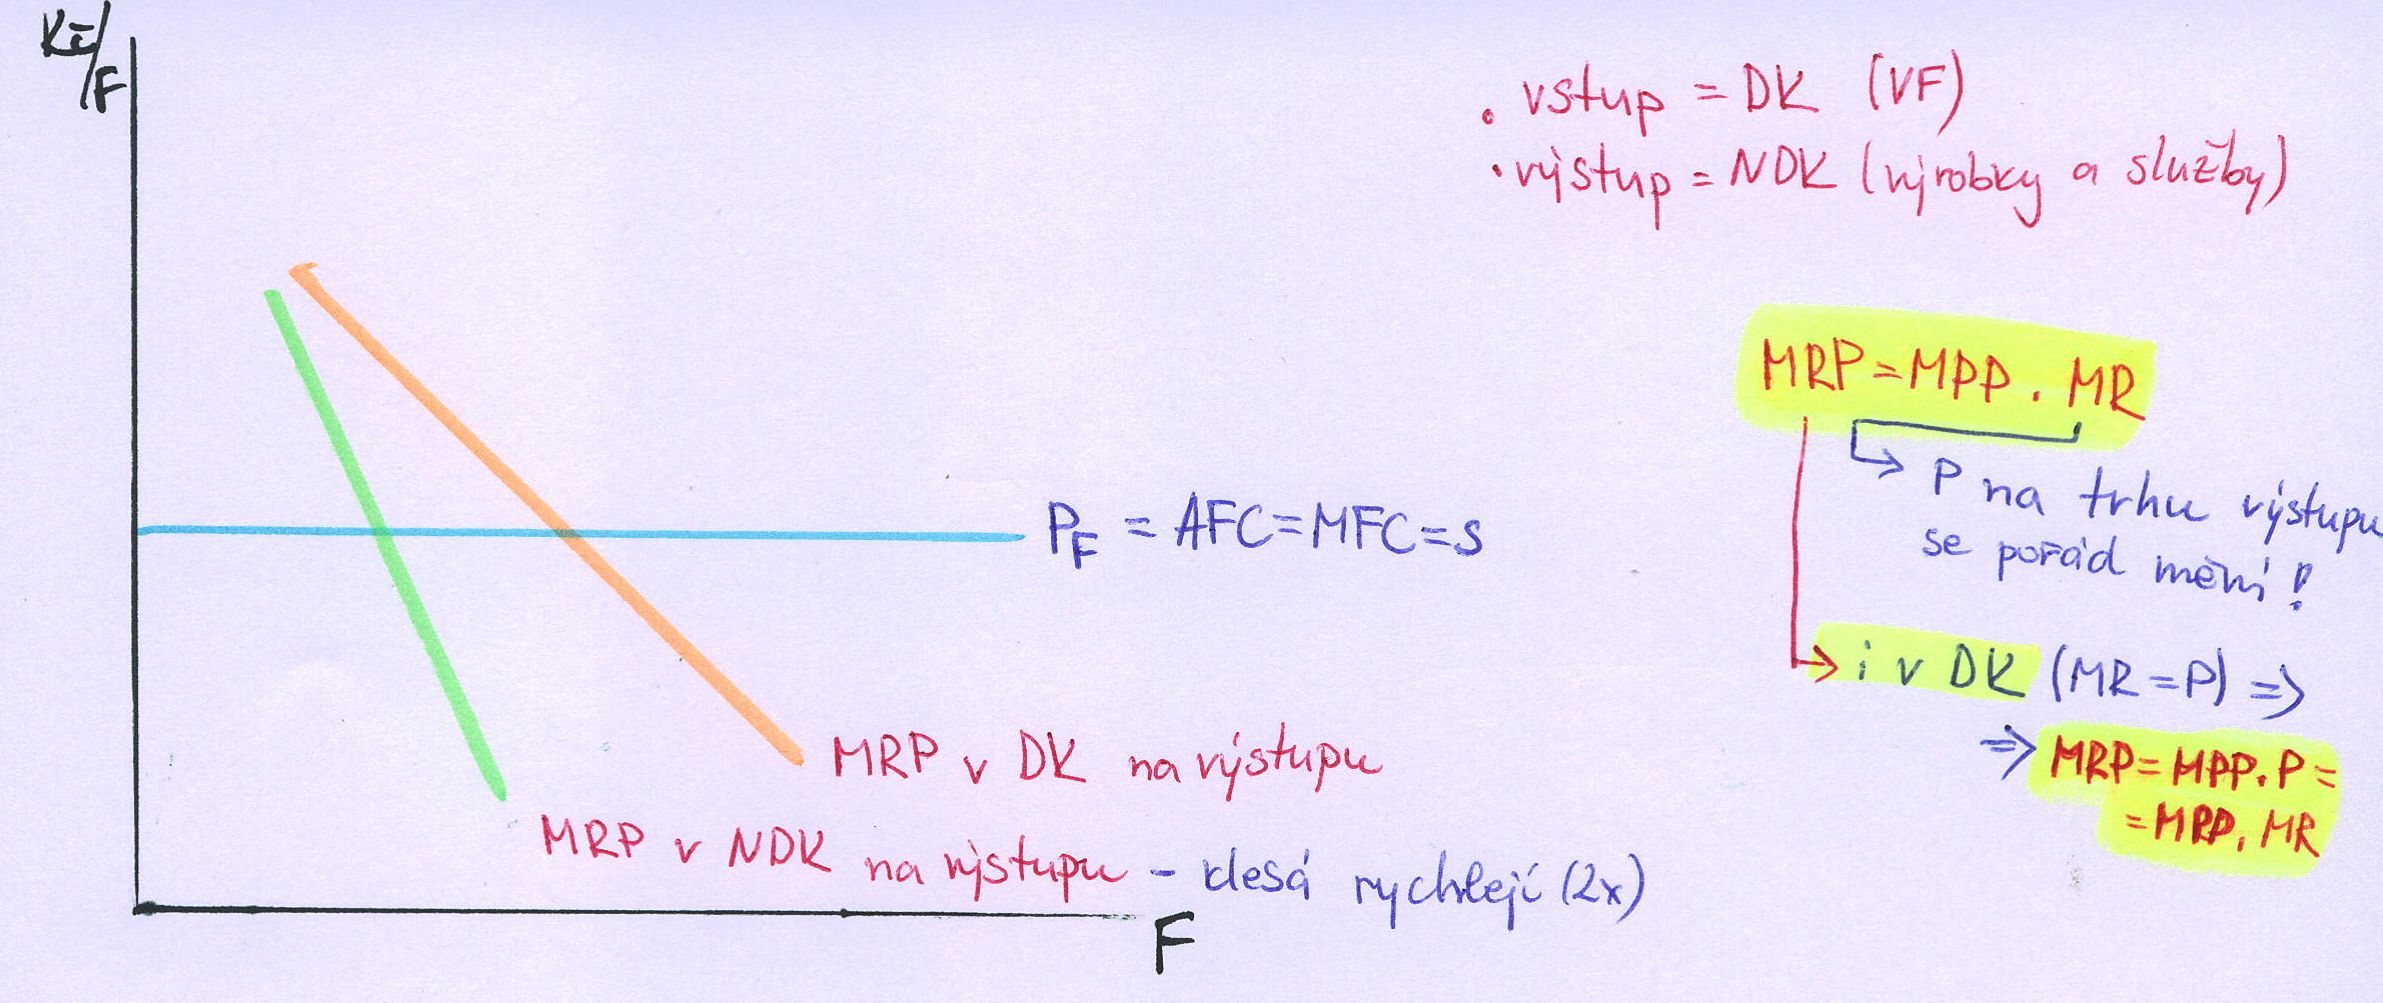 Kč/F
• vstup = DK (VF)
• výstup = NDK (výrobky a služby)
MRP = MPP . MR
P na trhu výstupu
se pořád mění!
PF = AFC = MFC = s
i v DK (MR = P) =>
=> MRP = MPP . P =
= MRP . MR
MRP v DK na výstupu
MRP v NDK na výstupu - klesá rychleji (2x)
F